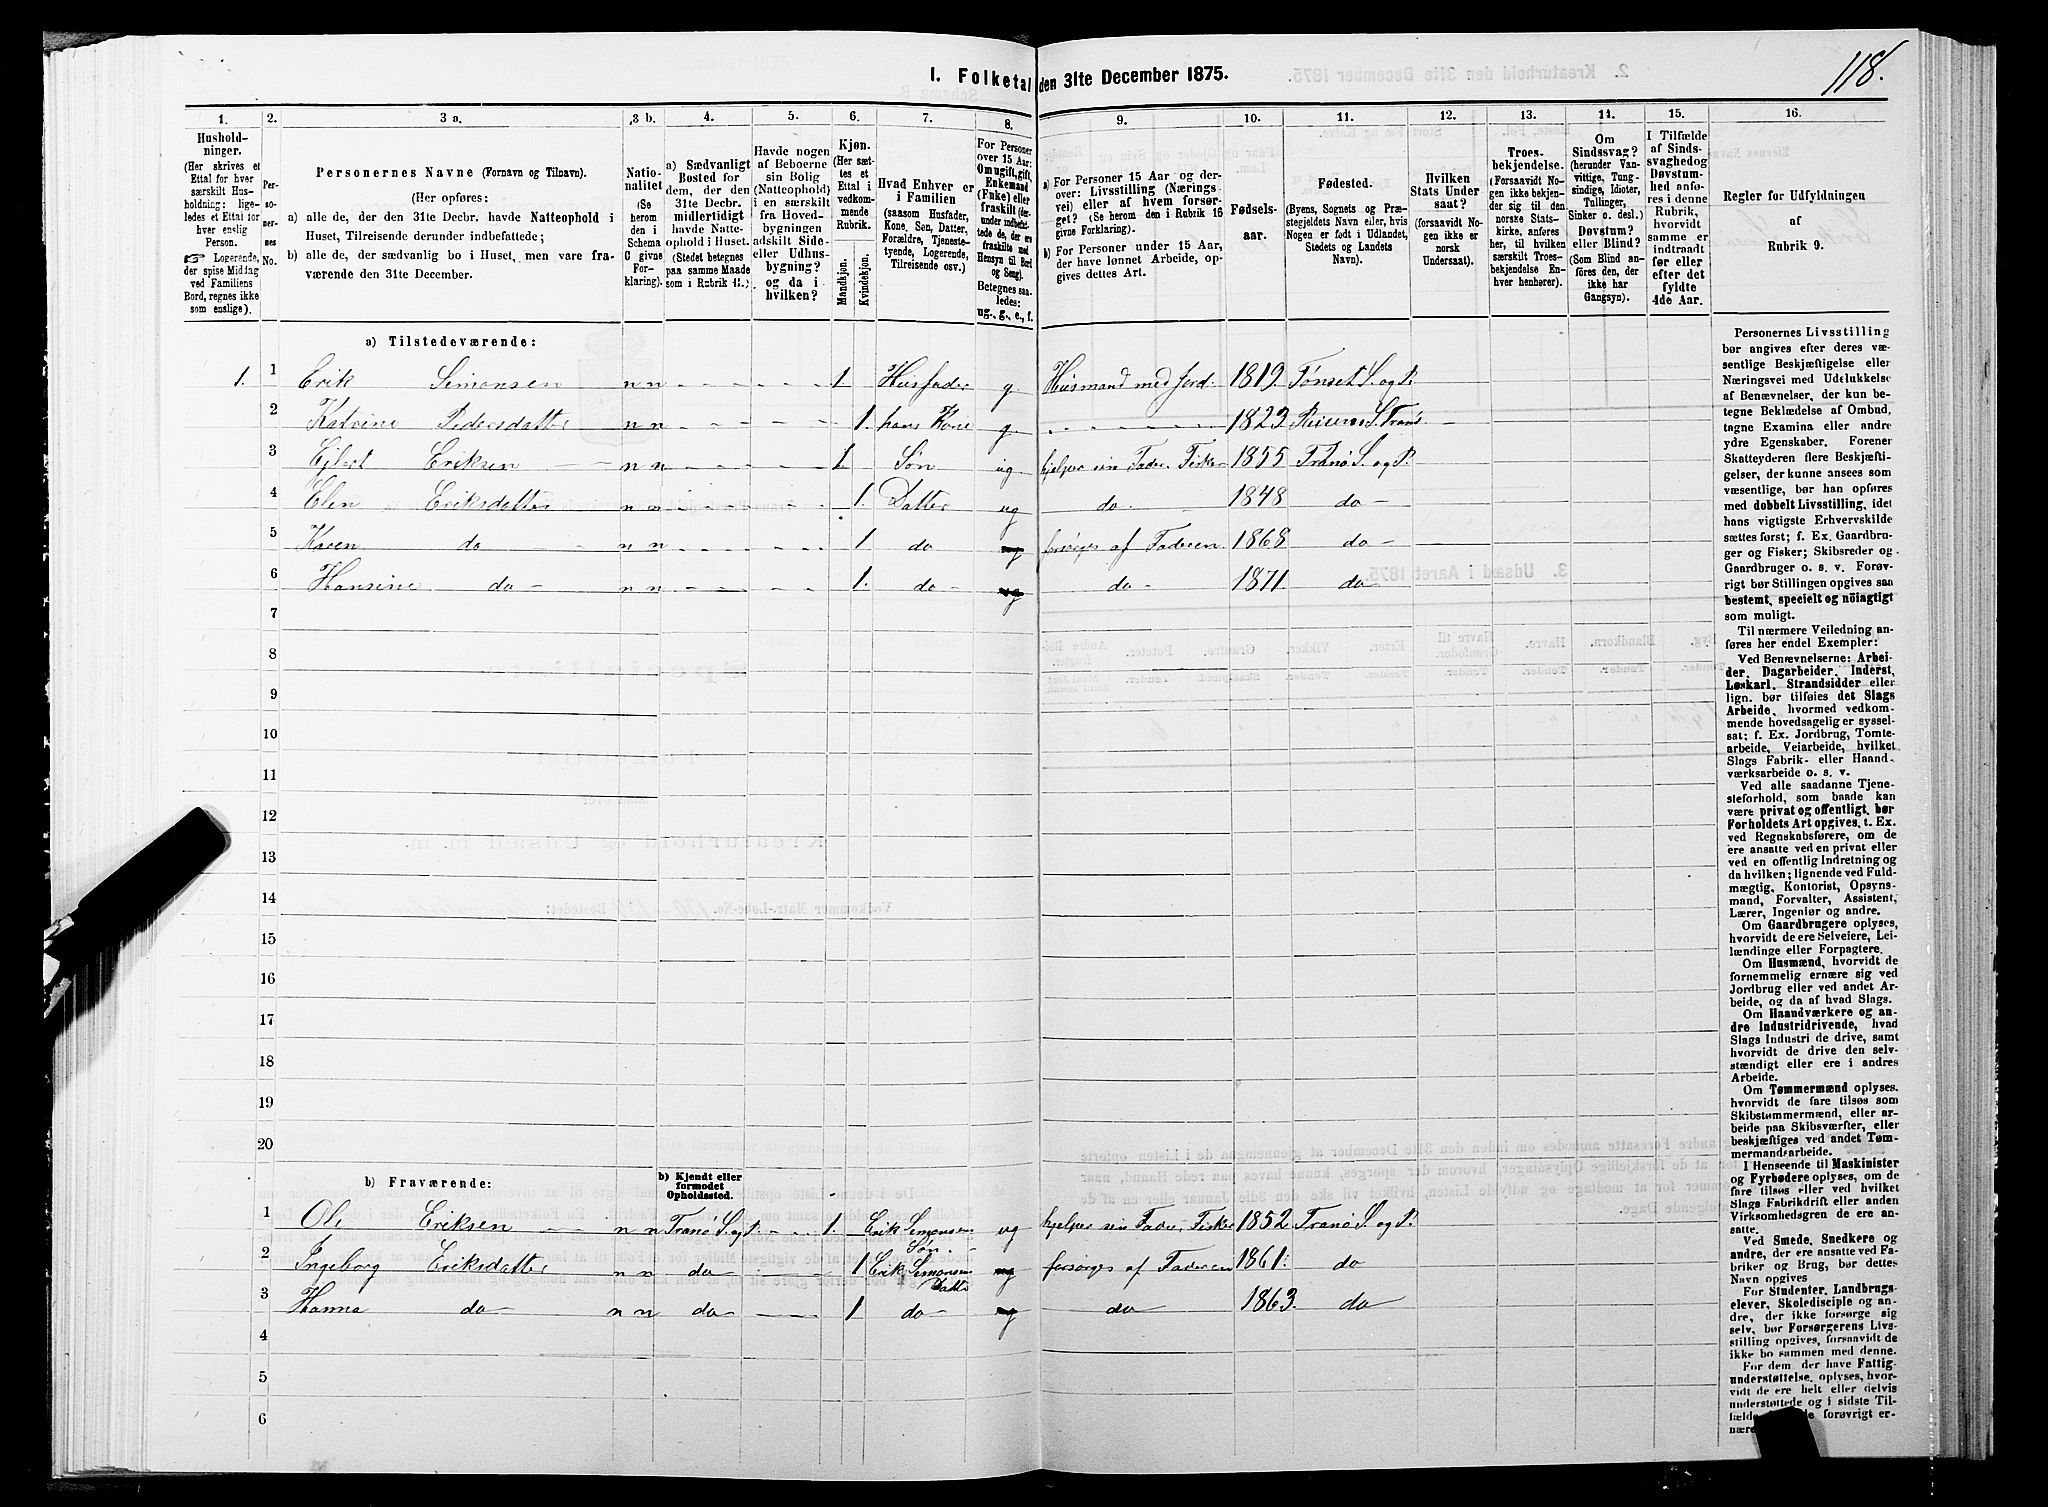 118.
I. Folketal den 31te December 1875.
1.
Husholdninger.
(Her skrives et
Ettal for hver
særskilt Husholdning;
ligeledes et Ettal for
hver enslig
Person.
☞ Logerende,
der spise Middag
ved Familiens
Bord, regnes ikke
som enslige).
2.
Personernes
No.
3 a.
Personernes Navne (Fornavn og Tilnavn).
(Her opføres:
a) alle de, der den 31te Decbr. havde Natteophold i
Huset, Tilreisende derunder indbefattede;
b) alle de, der sædvanlig bo i Huset, men vare fraværende
den 31te December.
3 b.
Nationalitet
(Se
herom
den i
Schema
C givne
Forklaring).
4.
a) Sædvanligt
Bosted for
dem, der den
31te Decbr.
midlertidigt
havde Natteophold
i Huset.
(Stedet betegnes
paa samme Maade
som i Rubrik 11.)
5.
Havde nogen
af Beboerne
sin Bolig
(Natteophold)
i en særskilt
fra Hovedbygningen
adskilt Side-
eller Udhusbygning?
og da i
hvilken?
6.
Kjøn.
(Her sættes
et
Ettal i
vedkommende
Rubrik.
Mandkjøn.
Kvindekjøn.
7.
Hvad Enhver er
i Familien
(saasom Husfader,
Kone, Søn, Datter,
Forældre, Tjenestetyende,
Logerende,
Tilreisende osv.)
8.
For Personer
over 15 Aar:
Om ugift, gift,
Enkemand
(Enke) eller
fraskilt (derunder
indbefattede
de, der ere
fraskilte med
Hensyn til Bord
og Seng).
Betegnes saaledes:
ug., g., e., f.
9.
a) For Personer 15 Aar og derover:
Livsstilling (Næringsvei)
eller af hvem forsørget?
(Se herom den i Rubrik 16
givne Forklaring).
b) For Personer under 15 Aar,
der have lønnet Arbeide, opgives
dettes Art.
10.
Fødselsaar.
11.
Fødested.
(Byens, Sognets og Præstegjeldets
Navn eller, hvis
Nogen er født i Udlandet,
Stedets og Landets
Navn).
12.
Hvilken
Stats Undersaat?
(forsaavidt Nogen
ikke er
norsk
Undersaat).
13.
Troesbekjendelse.
(Forsaavidt Nogen
ikke bekjender
sig til den
norske Statskirke,
anføres
her, til hvilken
særskilt Troesbekjendelse
Enhver
henhører).
14.
Om
Sindssvag?
(herunder Vanvittige,
Tungsindige,
Idioter,
Tullinger,
Sinker o. desl.)
Døvstum?
eller Blind?
(Som Blind anføres
den, der
ikke har
Gangsyn).
15.
I Tilfælde
af Sindssvaghed
og
Døvstumhed
anføres
i denne
Rubrik,
hvorvidt
samme er
indtraadt
før eller
efter det
fyldte
4de Aar.
16.
Regler for Udfyldningen
af
Rubrik 9.
a) Tilstedeværende:
1. 1 Erik Simonsen n n 1 Husfader g Husmand med Jord. 1819 Tønset S. og P.
2 Katrine Pedersdatter n n 1. hans Kone g 1823 S. Tranø
3 Ejlert Eriksen n n 1 Søn ug hjelper sin Fader. Fisker 1855 Tranø S. og P.
4 Elen Eriksdatter n n 1. Datter ug do 1848 do
5 Karen do n n 1 do ug forsørges af Faderen 1868 do
6 Hansine do n n 1. do ug do 1871 do
7
8
9
10
11
12
13
14
15
16
17
18
19
20
b) Fraværende:
b) Kjendt eller
formodet
Opholdssted.
1 Ole Eriksen n n Tranø S. og P. 1. Erik Simonsens Søn ug hjelper sin Fader, Fisker 1852 Tranø S. og P.
2 Ingeborg Eriksdatter n n do 1 Erik Simonsens Datter ug forsørges af Faderen 1861 do
3 Hanna do n n do 1 do ug do 1863. do
4
5
6
Personernes Livsstilling
bør angives efter deres væsentlige
Beskjæftigelse eller
Næringsvei med Udelukkelse
af Benævnelser, der kun betegne
Beklædelse af Ombud,
tagne Examina eller andre
ydre Egenskaber. Forener
Skatteyderen flere Beskjæftigelser,
der kunne ansees som
væsentlige, bør han opføres
med dobbelt Livsstilling, idet
hans vigtigste Erhvervskilde
sættes først; f. Ex. Gaardbruger
og Fisker; Skibsreder og
Gaardbruger o. s. v. Forøvrigt
bør Stillingen opgives saa
bestemt, specielt og nöiagtigt
som muligt.
Til nærmere Veiledning anføres
her endel Exempler:
Ved Benævnelserne: Arbeider,
Dagarbeider, Inderst,
Løskarl, Strandsidder eller
lign. bør tilføies det Slags
Arbeide, hvormed vedkommende
hovedsagelig er sysselsat;
f. Ex. Jordbrug, Tomtearbeide,
Veiarbeide, hvilket
Slags Fabrik- eller Haandværksarbeide
o. s. v.
Ved alle saadanne Tjenesteforhold,
som baade kan
være privat og offentligt, bør
Forholdets Art opgives, t. Ex.
ved Regnskabsførere, om de
ere ansatte ved en privat eller
ved en offentlig Indretning og
da hvilken; lignende ved Fuldmægtig,
Kontorist, Opsynsmand,
Forvalter, Assistent,
Lærer, Ingeniør og andre.
Om Gaardbrugere oplyses,
hvorvidt de ere Selveiere, Leilændinge
eller Forpagtere.
Om Husmænd, hvorvidt de
fornemmelig ernære sig ved
Jordbrug eller ved andet Arbeide,
og da af hvad Slags.
Om Haandværkere og andre
Industridrivende, hvad
Slags Industri de drive, samt
hvorvidt de drive den selvstændigt
eller ere i andres
Arbeide.
Om Tømmermænd oplyses,
hvorvidt de fare tilsøs som
Skibstømmermænd, eller arbeide
paa Skibsværfter, eller
beskjæftiges ved andet Tømmermandsarbeide.
I Henseende til Maskinister
og Fyrbødere oplyses, om de
fare tilsøs eller ved hvilket
Slags Fabrikdrift eller anden
Virksomhedsgren de ere ansatte.
Ved Smede, Snedkere og
andre, der ere ansatte ved Fabriker
og Brug, bør dettes
Navn opgives
For Studenter, Landbrugselever,
Skoledisciple og andre,
der ikke forsørge sig
selv, bør Forsørgerens Livsstilling
opgives, forsaavidt de
ikke bo sammen med denne.
For dem, der have Fattigunderstøttelse,
oplyses, hvorvidt
de ere helt eller delvis
understøttede og i sidste Tilfælde,
forøvrigt ernære